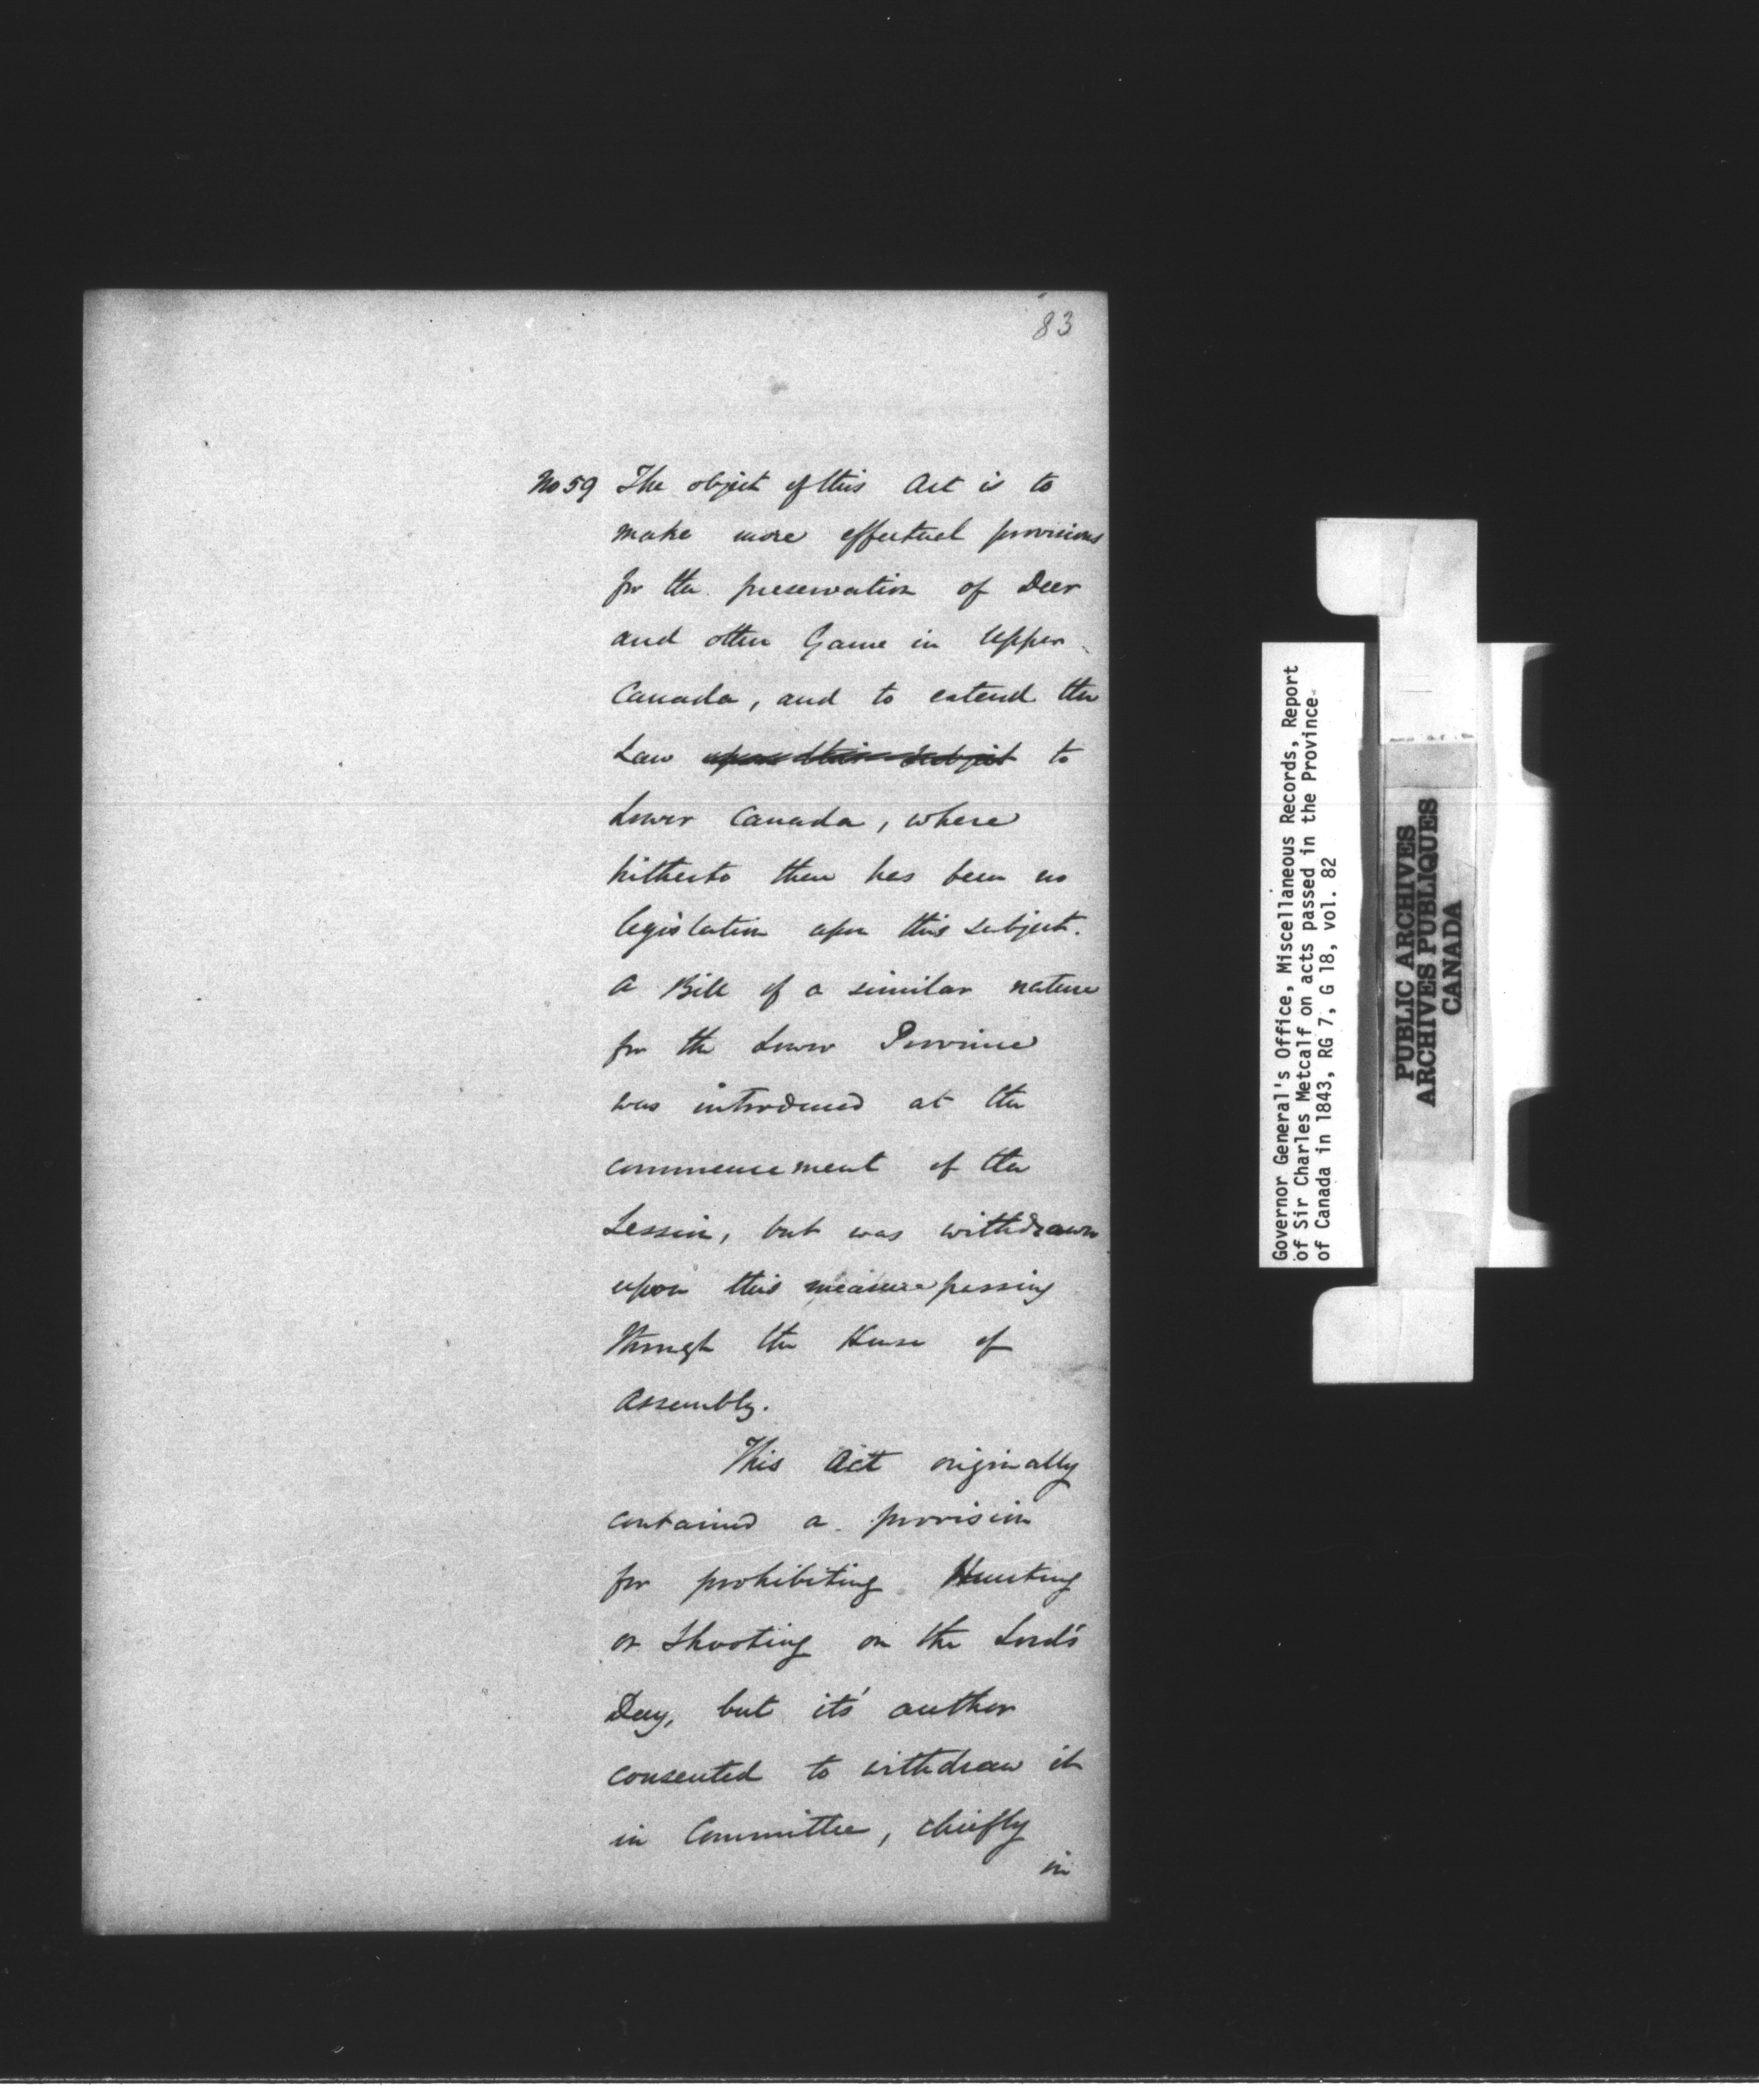 83
No 59 The object of this Act is to
make more effectual provisions
for the preservation of Deer
and other Game in Upper
Canada, and to extend the
Law upon this subject to
Lower Canada, where
hitherto there has been no
legislation upon this subject.
A Bill of a similar nature
for the Lower Province
was introduced at the
commencement of the
Session, but was withdrawn
upon this measure passing
through the House of
Assembly.
This Act originally
contained a provision
for prohibiting Hunting
or Shooting on the Lord's
Day, but it's author
consented to withdraw it
in Committee, chiefly
in
Governor General's Office, Miscellaneous Records, Report
of Sir Charles Metcalf on acts passed in the Province
of Canada in 1843, RG 7, G 18, vol. 82
PUBLIC ARCHIVES
ARCHIVES PUBLIQUES
CANADA